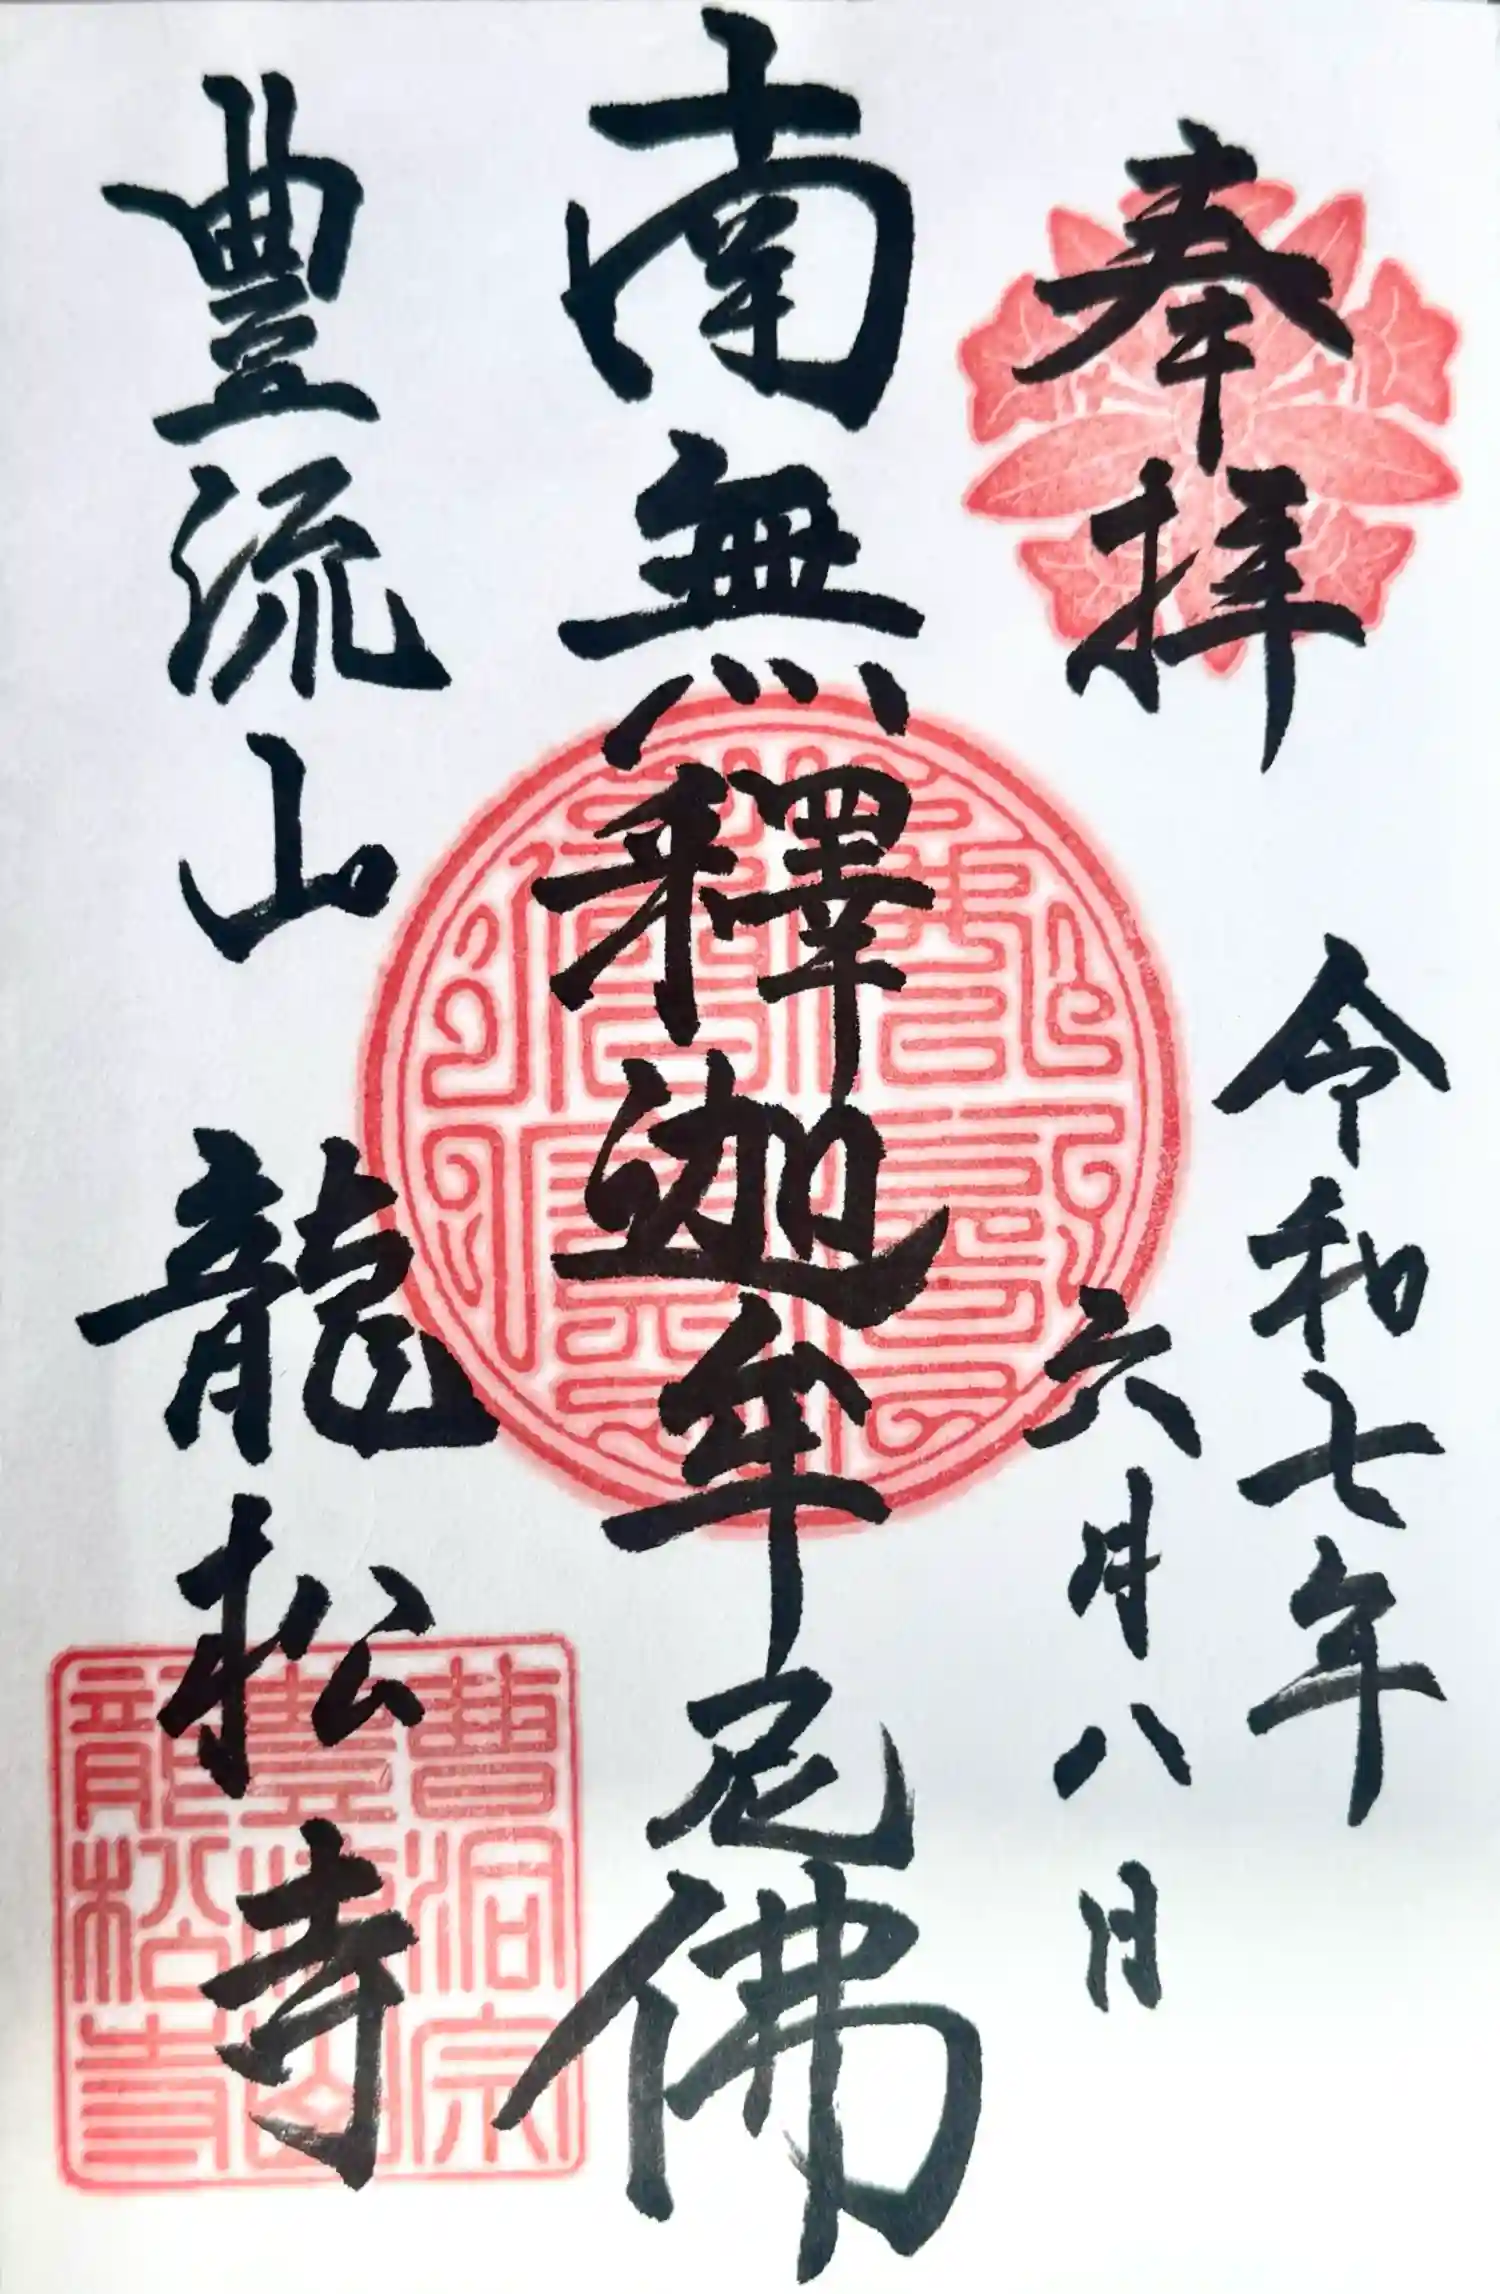 奉拝
令和七年
六月八日
南無釋迦牟尼佛
豊流山 龍松寺
曹洞宗
豊流山
龍松寺